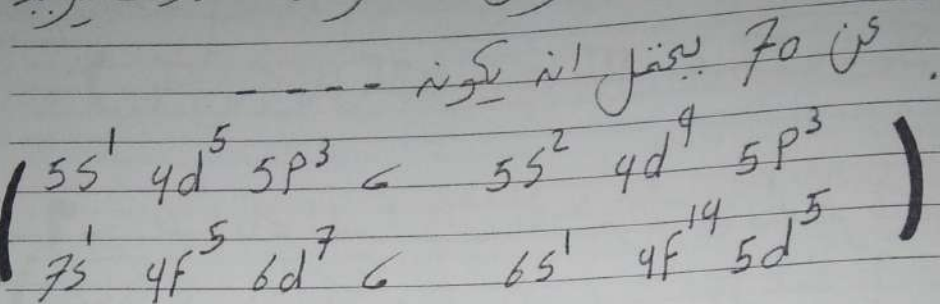 عن 70 يحتمل ان يكون ----
( 5S¹ 4d⁵ 5P³ ، 5S² 4d⁹ 5P³
7S¹ 4F⁵ 6d⁷ ، 6S¹ 4F¹⁴ 5d⁵ )